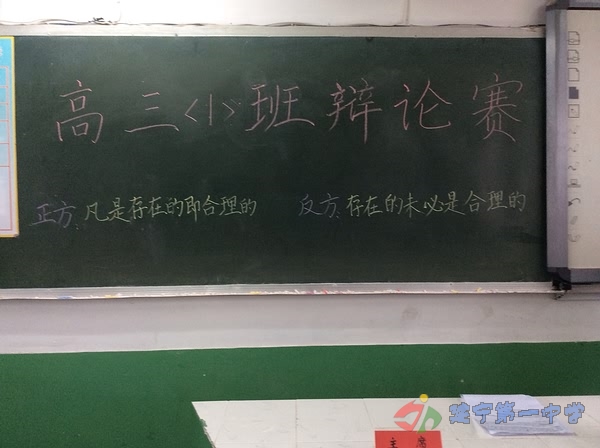 高三<1>班辩论赛
正方:凡是存在的即合理的 反方:存在的未必是合理的
建宁第一中学
主席